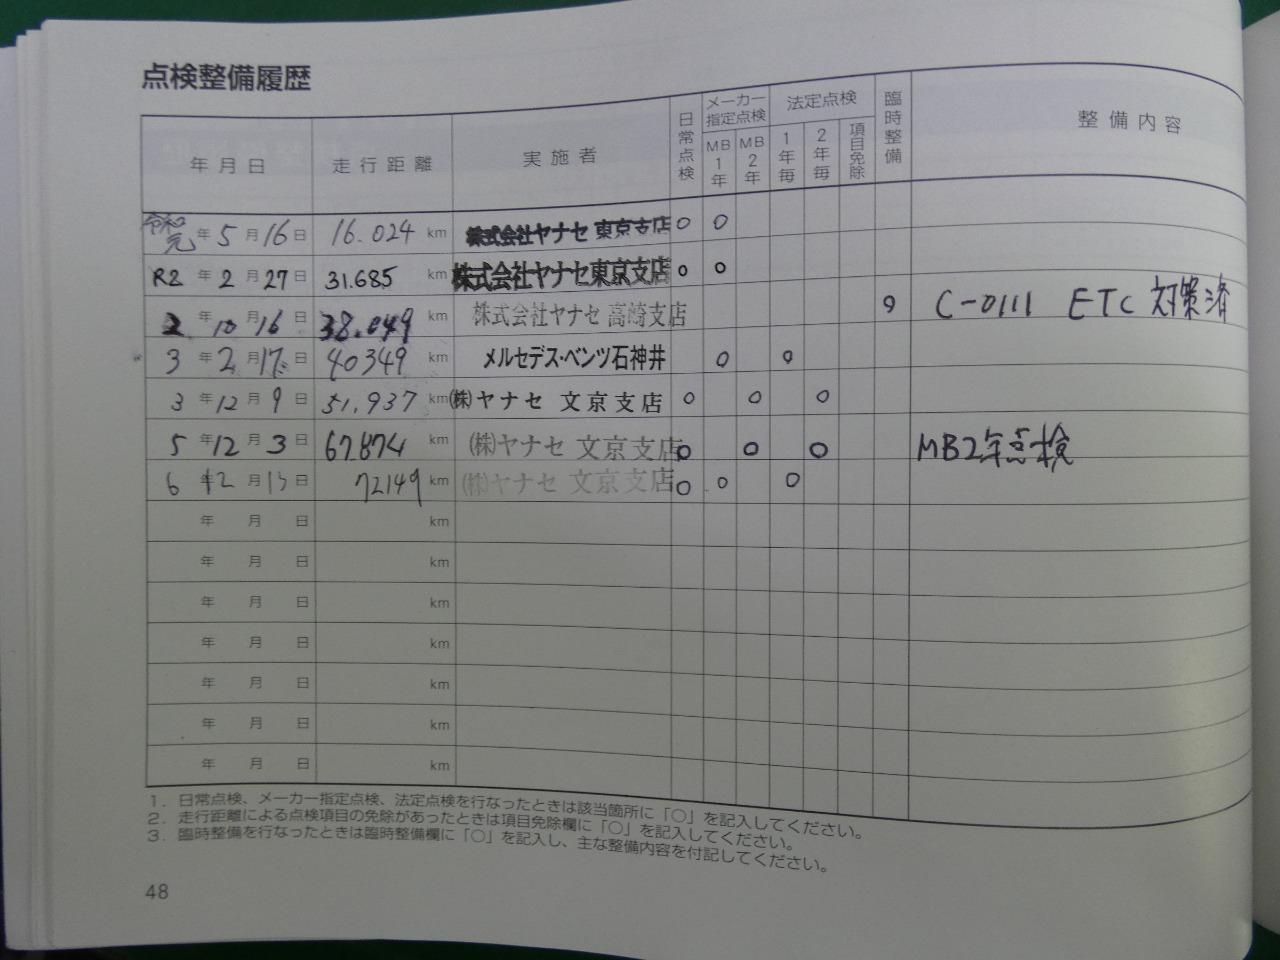 点検整備履歴
年月日 走行距離 実施者 日常点検 メーカー指定点検 MB1年 MB2年 法定点検 1年毎 2年毎 項目免除 臨時整備 整備内容
令和元年5月16日 16.024km 株式会社ヤナセ 東京支店 ○ ○
R2年2月27日 31.685km 株式会社ヤナセ東京支店 ○ ○
2年10月16日 38.049km 株式会社ヤナセ 高崎支店 9 C-0111 ETC 対策済
3年2月17日 40349km メルセデス・ベンツ石神井 ○ ○
3年12月9日 51.937km ㈱ヤナセ 文京支店 ○ ○ ○
5年12月3日 67.874km ㈱ヤナセ 文京支店 ○ ○ ○ MB2年点検
6年12月13日 72149km ㈱ヤナセ 文京支店 ○ ○ ○
年 月 日 km
年 月 日 km
年 月 日 km
年 月 日 km
年 月 日 km
年 月 日 km
年 月 日 km
1. 日常点検、メーカー指定点検、法定点検を行なったときは該当箇所に「○」を記入してください。
2. 走行距離による点検項目の免除があったときは項目免除欄に「○」を記入してください。
3. 臨時整備を行なったときは臨時整備欄に「○」を記入し、主な整備内容を付記してください。
48